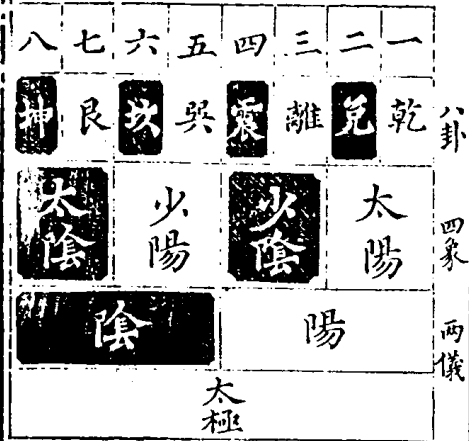 八 七 六 五 四 三 二 一
坤 艮 坎 巽 震 離 兌 乾 八卦
太陰 少陽 少陰 太陽 四象
陰 陽 两儀
太極